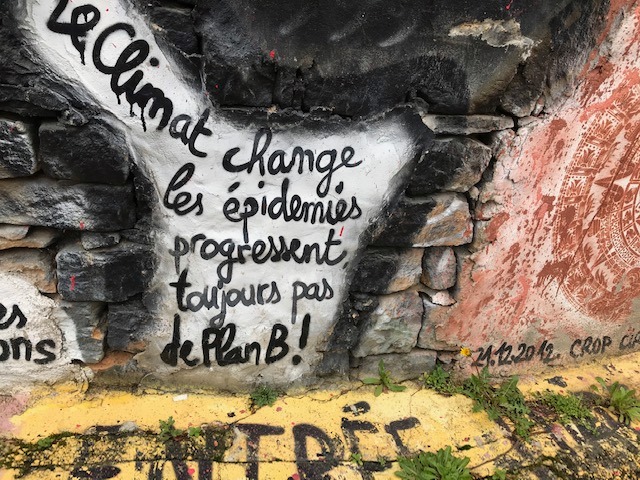 Le Climat change
les épidemies
progressent
toujours pas
de Plan B!
es
ons
21.12.2012. CROP CIR
ENTRÉE